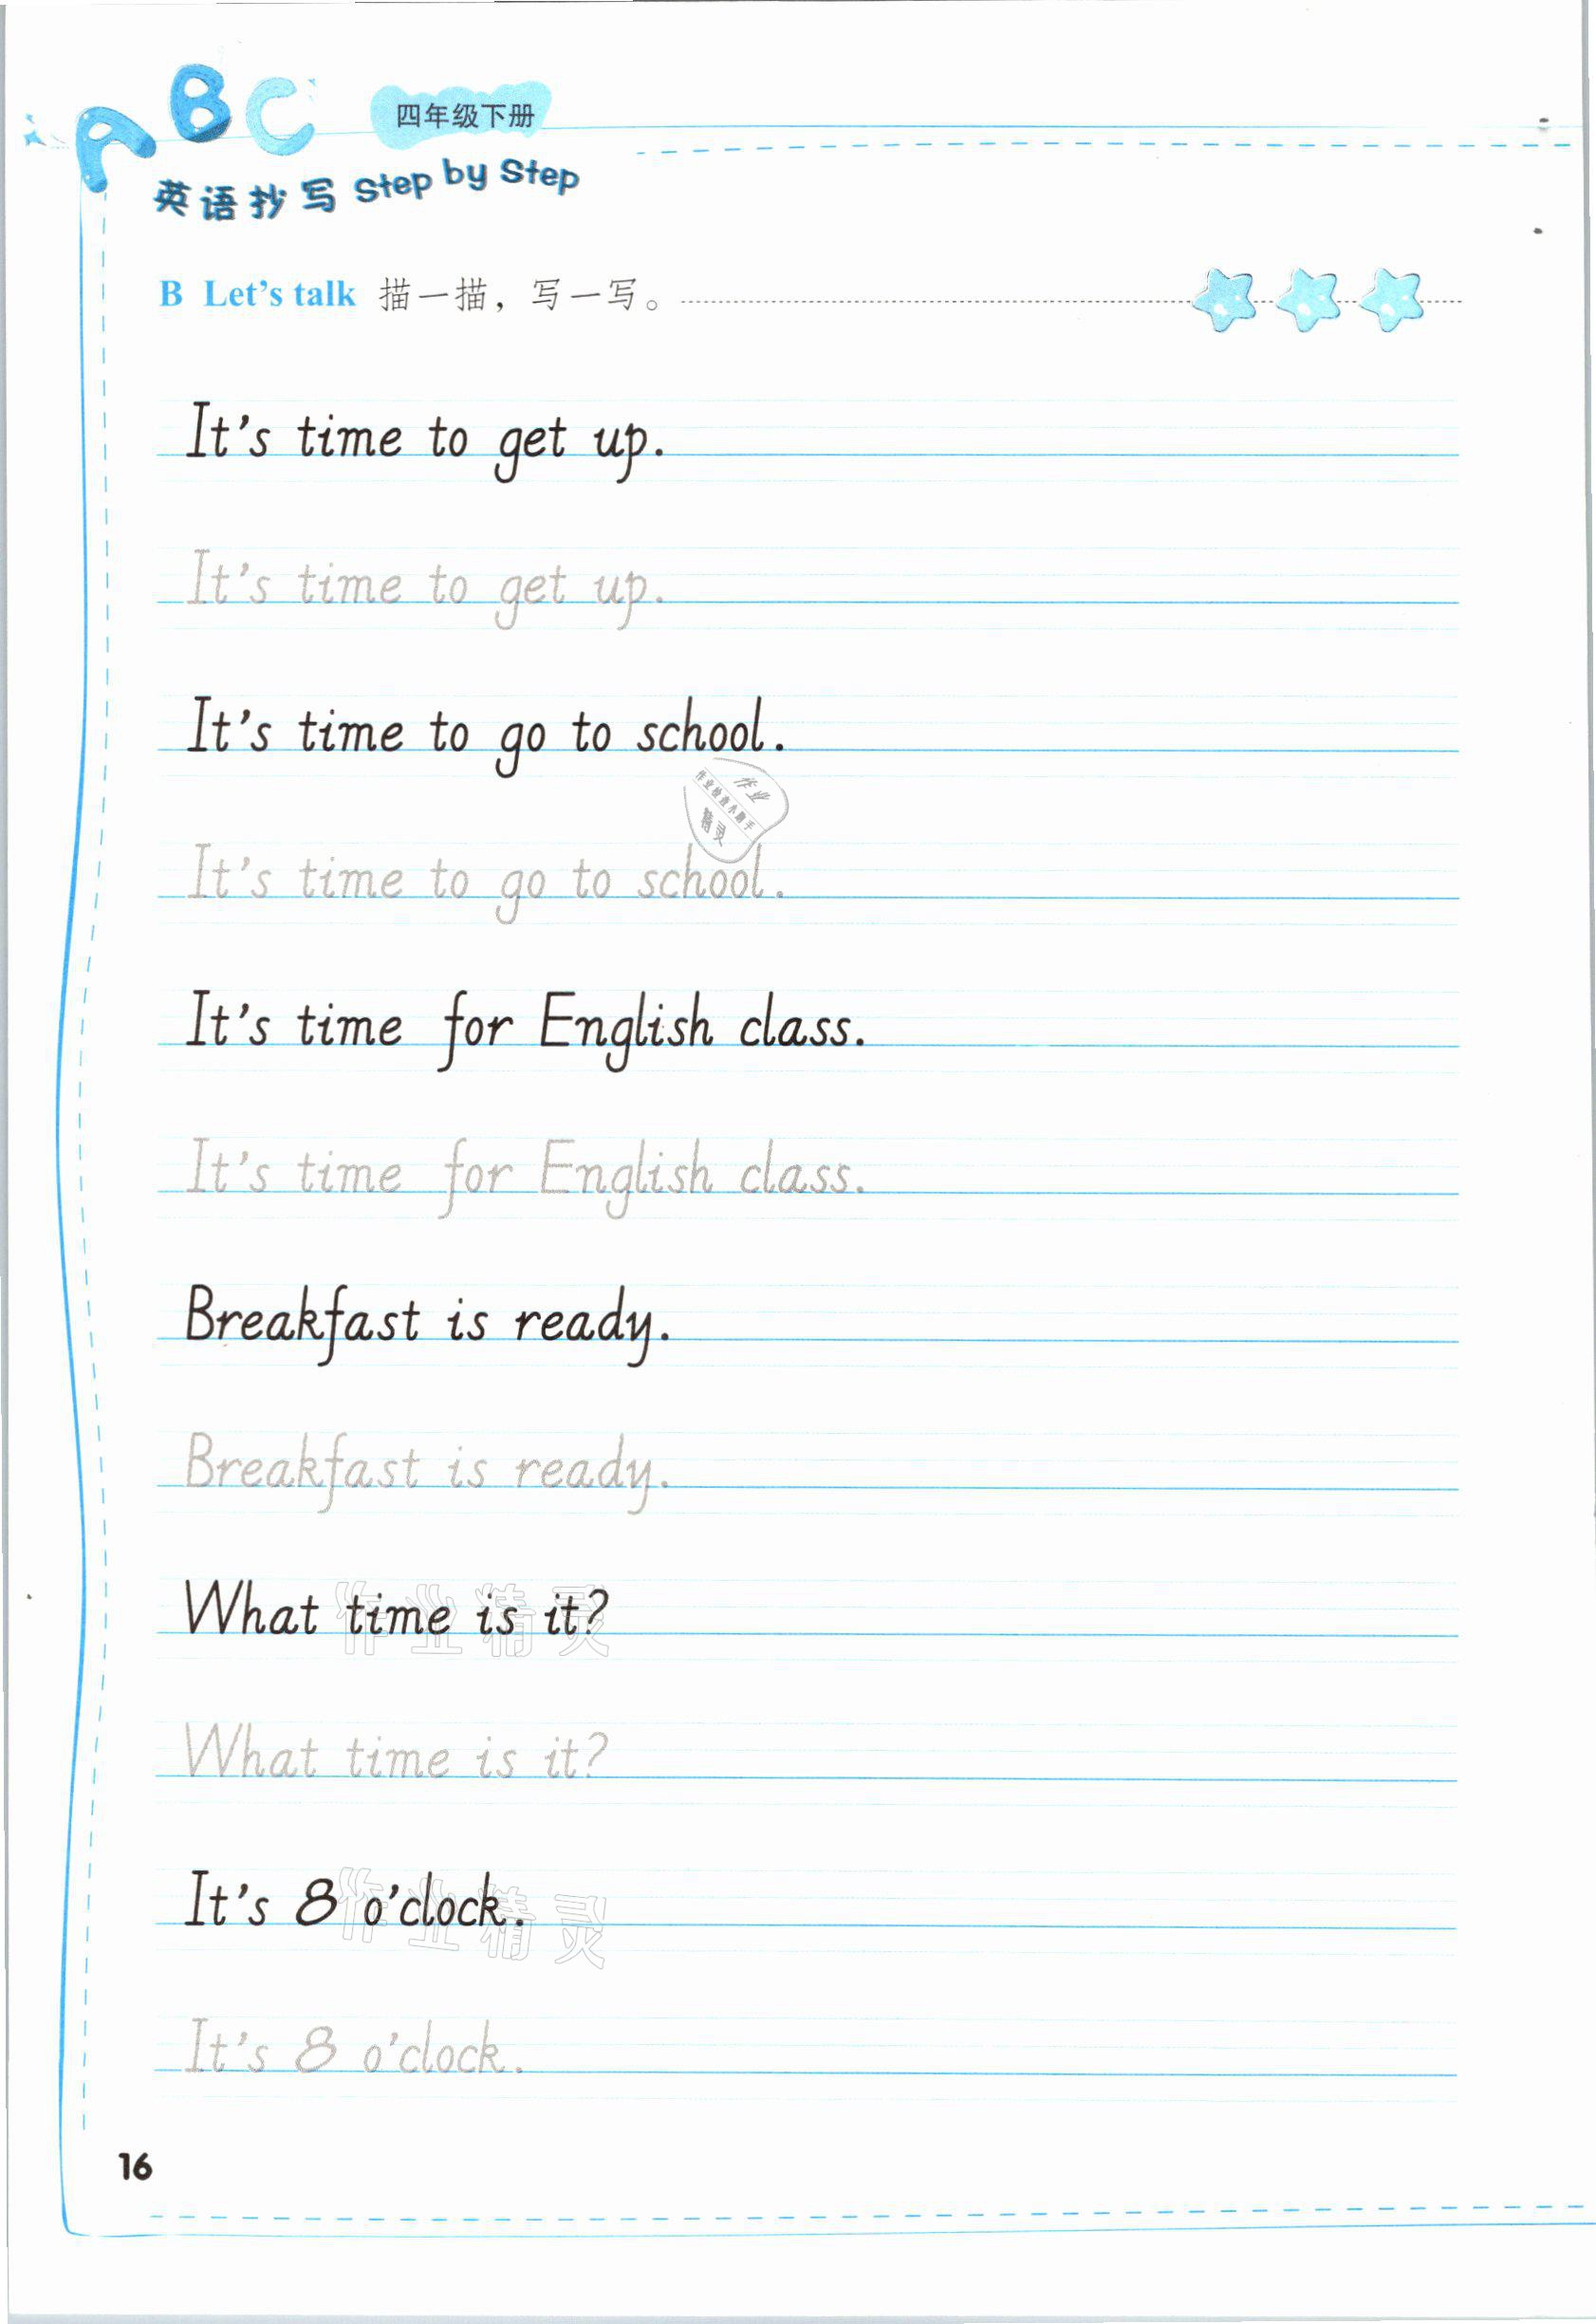 ABC
四年级下册
英语抄写 Step by Step
B Let's talk 描一描，写一写。
It's time to get up.
It's time to get up.
It's time to go to school.
作业
作业检查小助手
精灵
It's time to go to school.
It's time for English class.
It's time for English class.
Breakfast is ready.
Breakfast is ready.
What time is it?
作业精灵
What time is it?
It's 8 o'clock.
作业精灵
It's 8 o'clock.
16